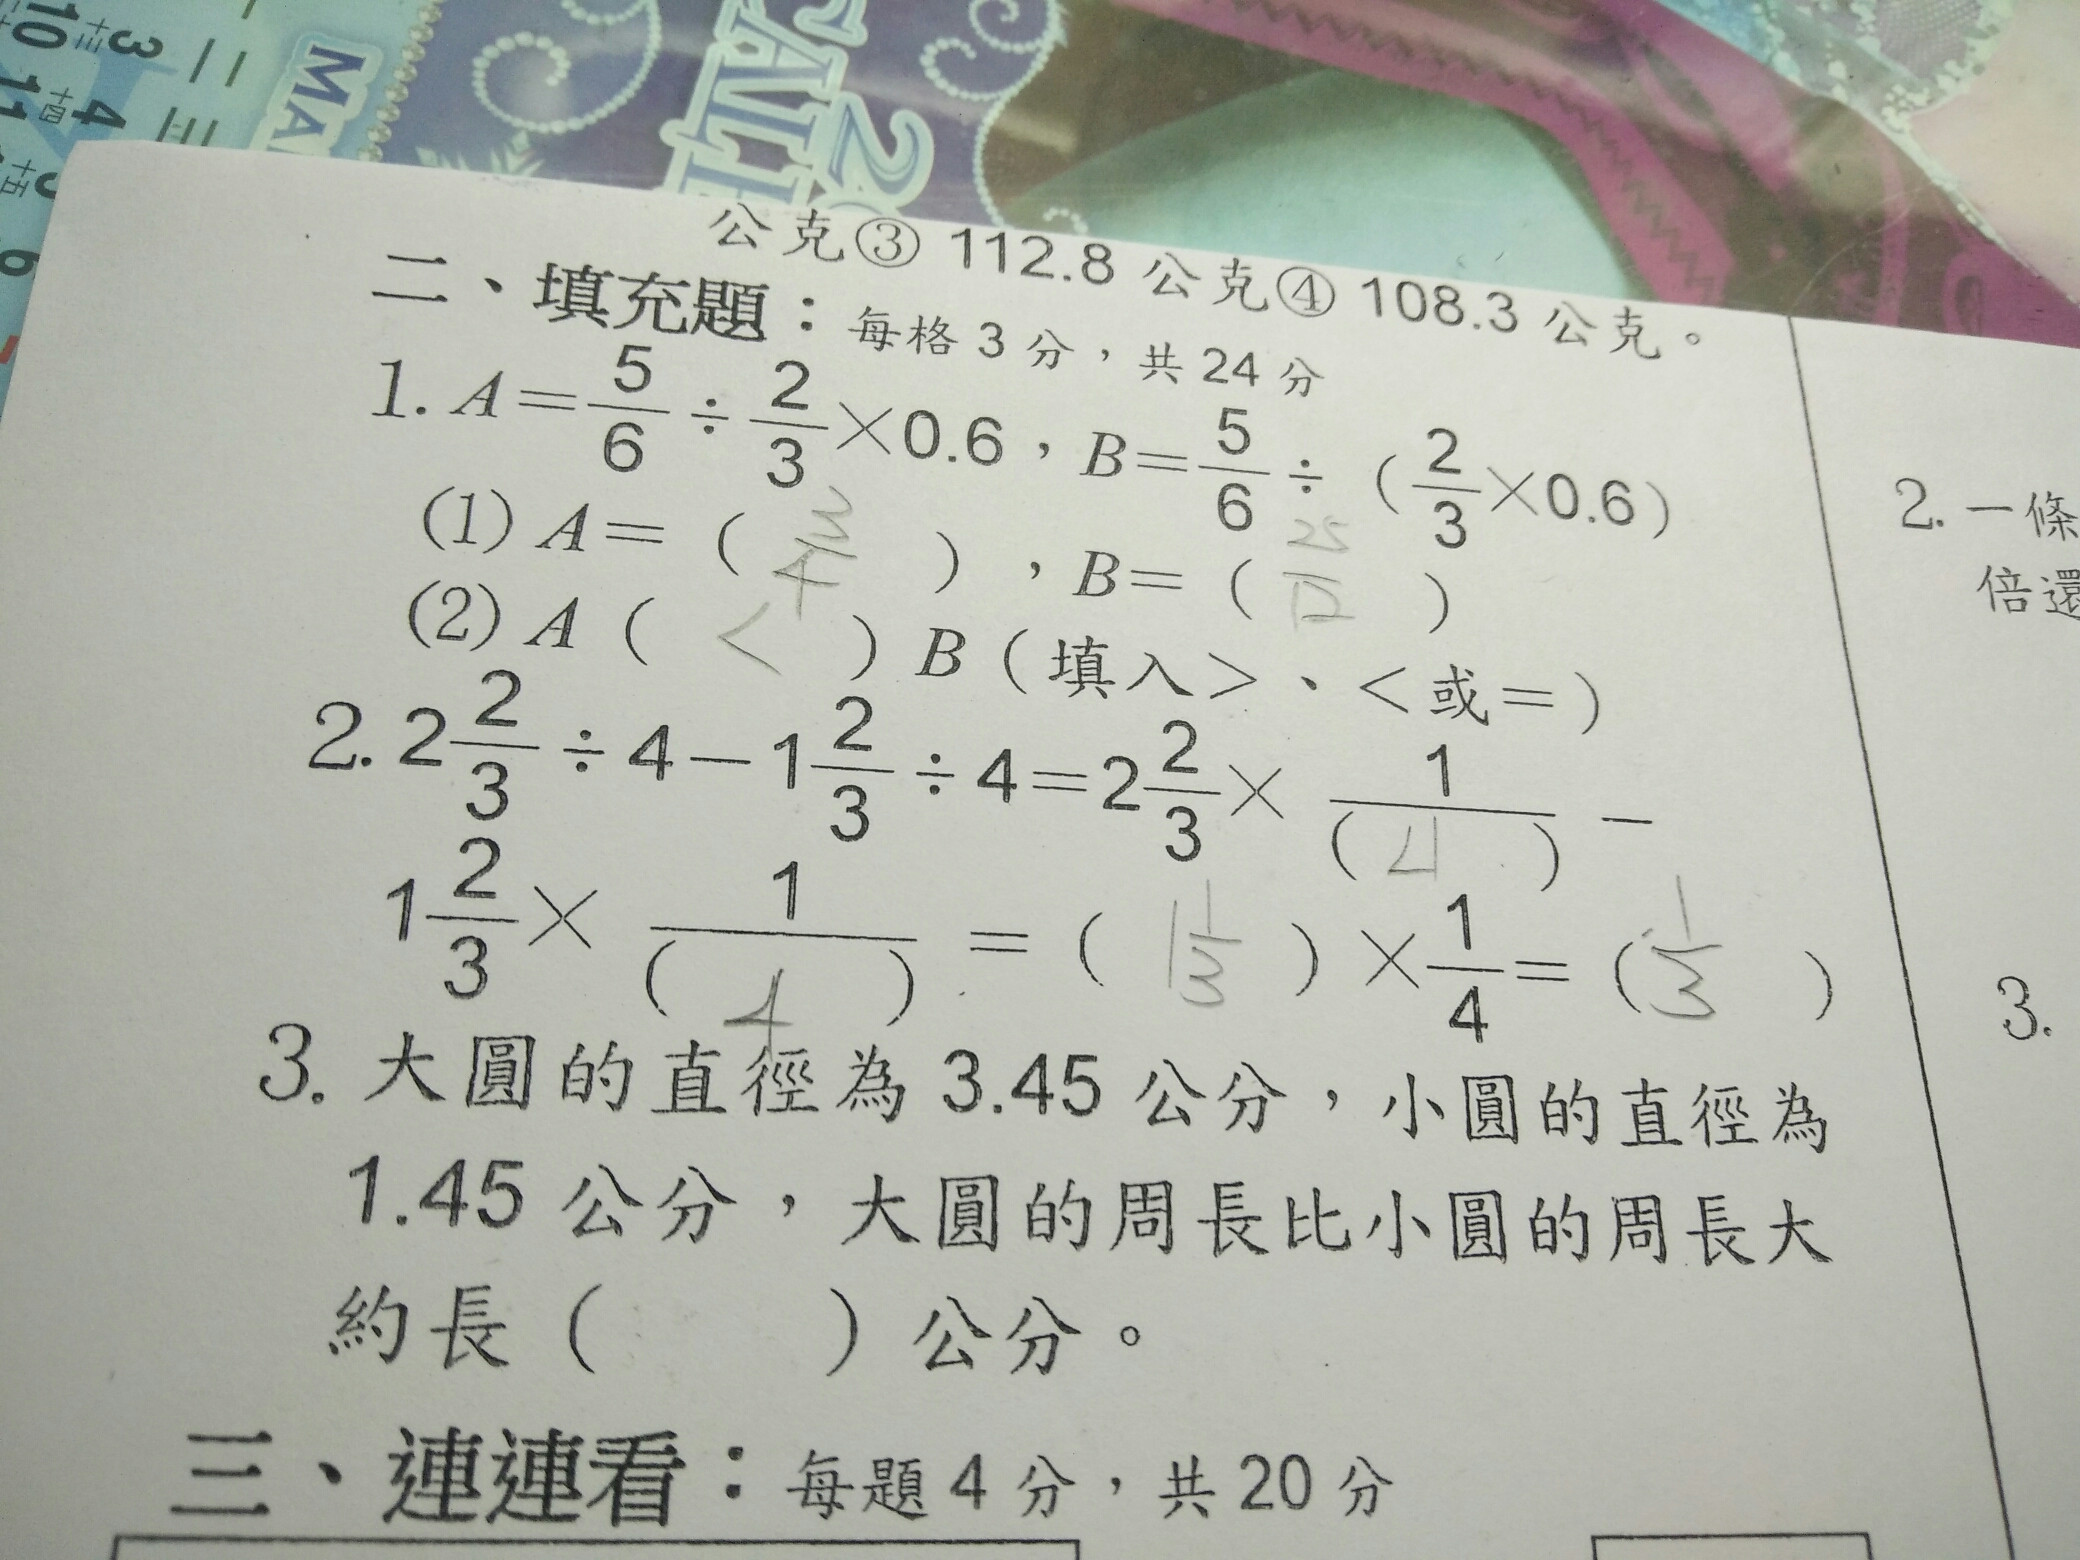 3
10
11
4
6
MA
公克③ 112.8 公克④ 108.3 公克。
二、填充題：每格 3 分，共 24 分
1. A＝5/6÷2/3×0.6，B＝5/6÷（2/3×0.6）
(1) A＝（ 3/4 ），B＝（ 25/12 ）
(2) A（ < ）B（填入＞、＜或＝）
2. 2 2/3÷4－1 2/3÷4＝2 2/3×1/( 4 )－
1 2/3×1/( 4 )＝（ 1 1/3 ）×1/4＝（ 1/3 ）
3. 大圓的直徑為 3.45 公分，小圓的直徑為
1.45 公分，大圓的周長比小圓的周長大
約長（ ）公分。
三、連連看：每題 4 分，共 20 分
2. 一條
倍還
3.